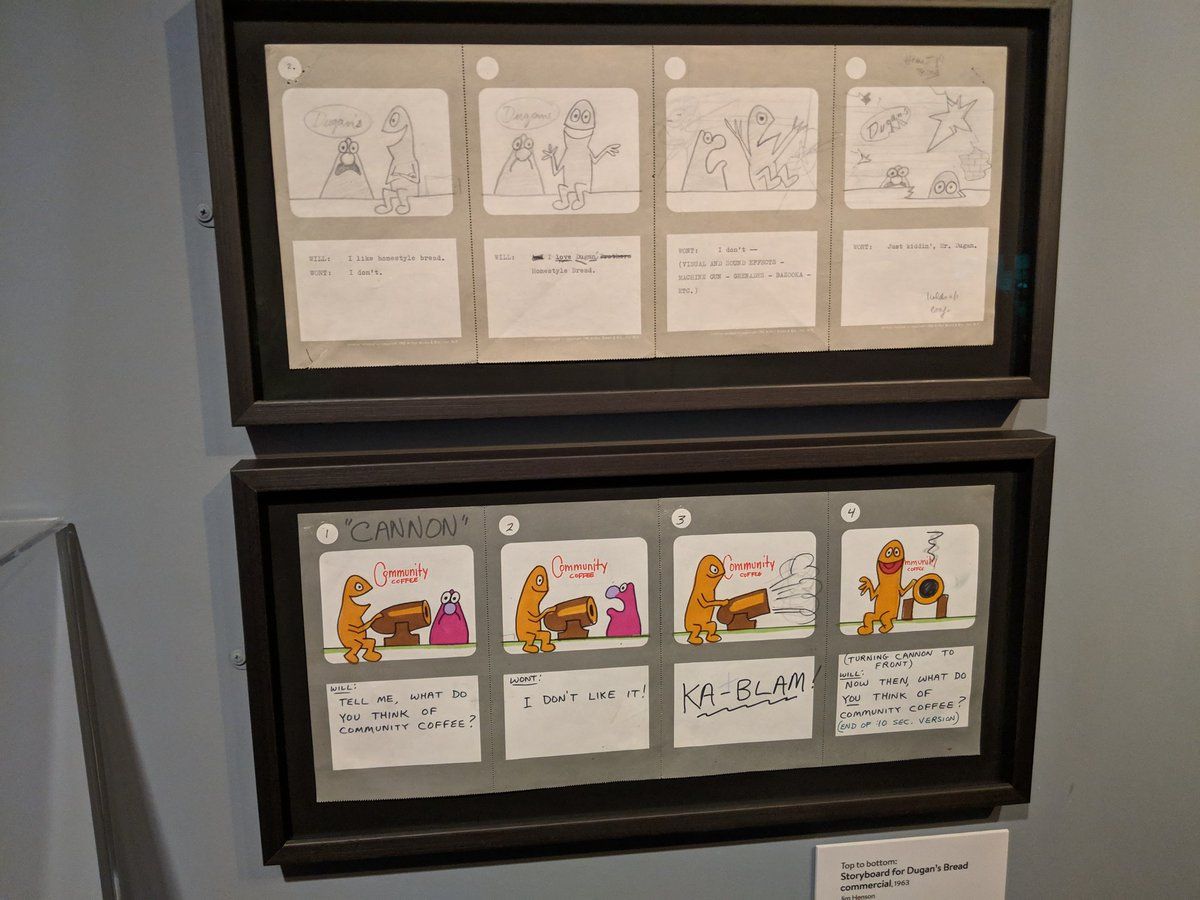 2.
Dugan's
WILL: I like homestyle bread.
WONT: I don't.
Dugan's
WILL: I Love Dugan
Homestyle Bread.
WONT: I don't —
(VISUAL AND SOUND EFFECTS -
MACHINE GUN - GRENADES - BAZOOKA -
ETC.)
Dugan's
WONT: Just kiddin', Mr. Dugan.
1
"CANNON"
Community
COFFEE
WILL:
TELL ME, WHAT DO
YOU THINK OF
COMMUNITY COFFEE?
2
Community
COFFEE
WONT:
I DON'T LIKE IT!
3
Community
COFFEE
KA-BLAM!
4
mmunity
COFFEE
(TURNING CANNON TO
FRONT)
WILL:
NOW THEN, WHAT DO
YOU THINK OF
COMMUNITY COFFEE?
(END OF :10 SEC. VERSION)
Top to bottom:
Storyboard for Dugan's Bread
commercial, 1963
Jim Henson